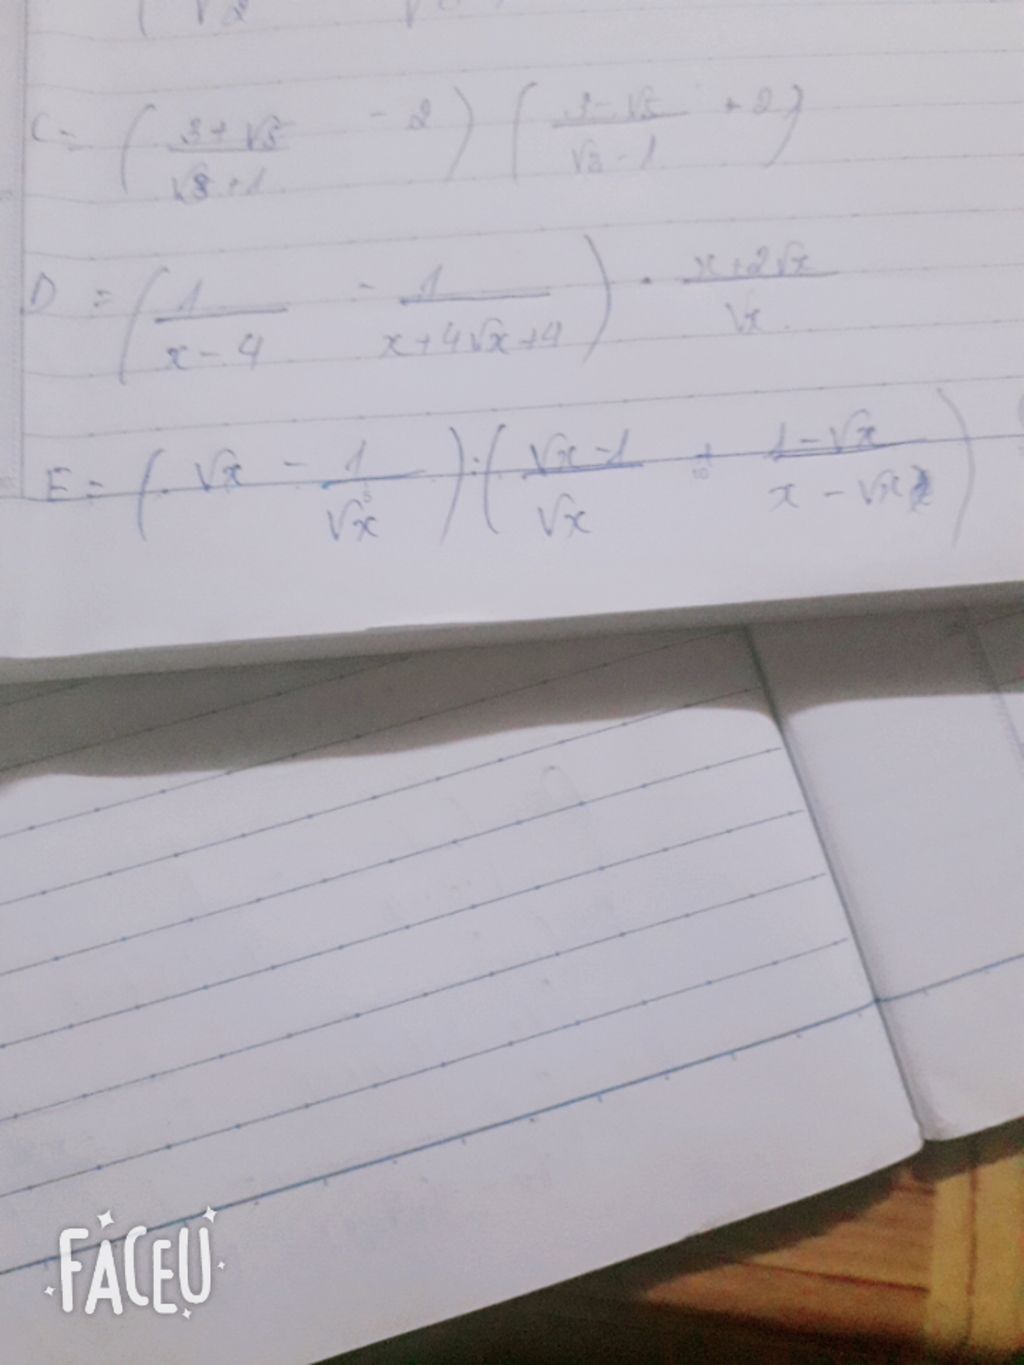 C = ( (3 + √3)/(√3 + 1) - 2 ) ( (3 - √3)/(√3 - 1) + 2 )
D = ( 1/(x - 4) - 1/(x + 4√x + 4) ) . (x + 2√x)/√x
E = ( √x - 1/√x ) : ( (√x - 1)/√x + (1 - √x)/(x - √x) )
FACEU